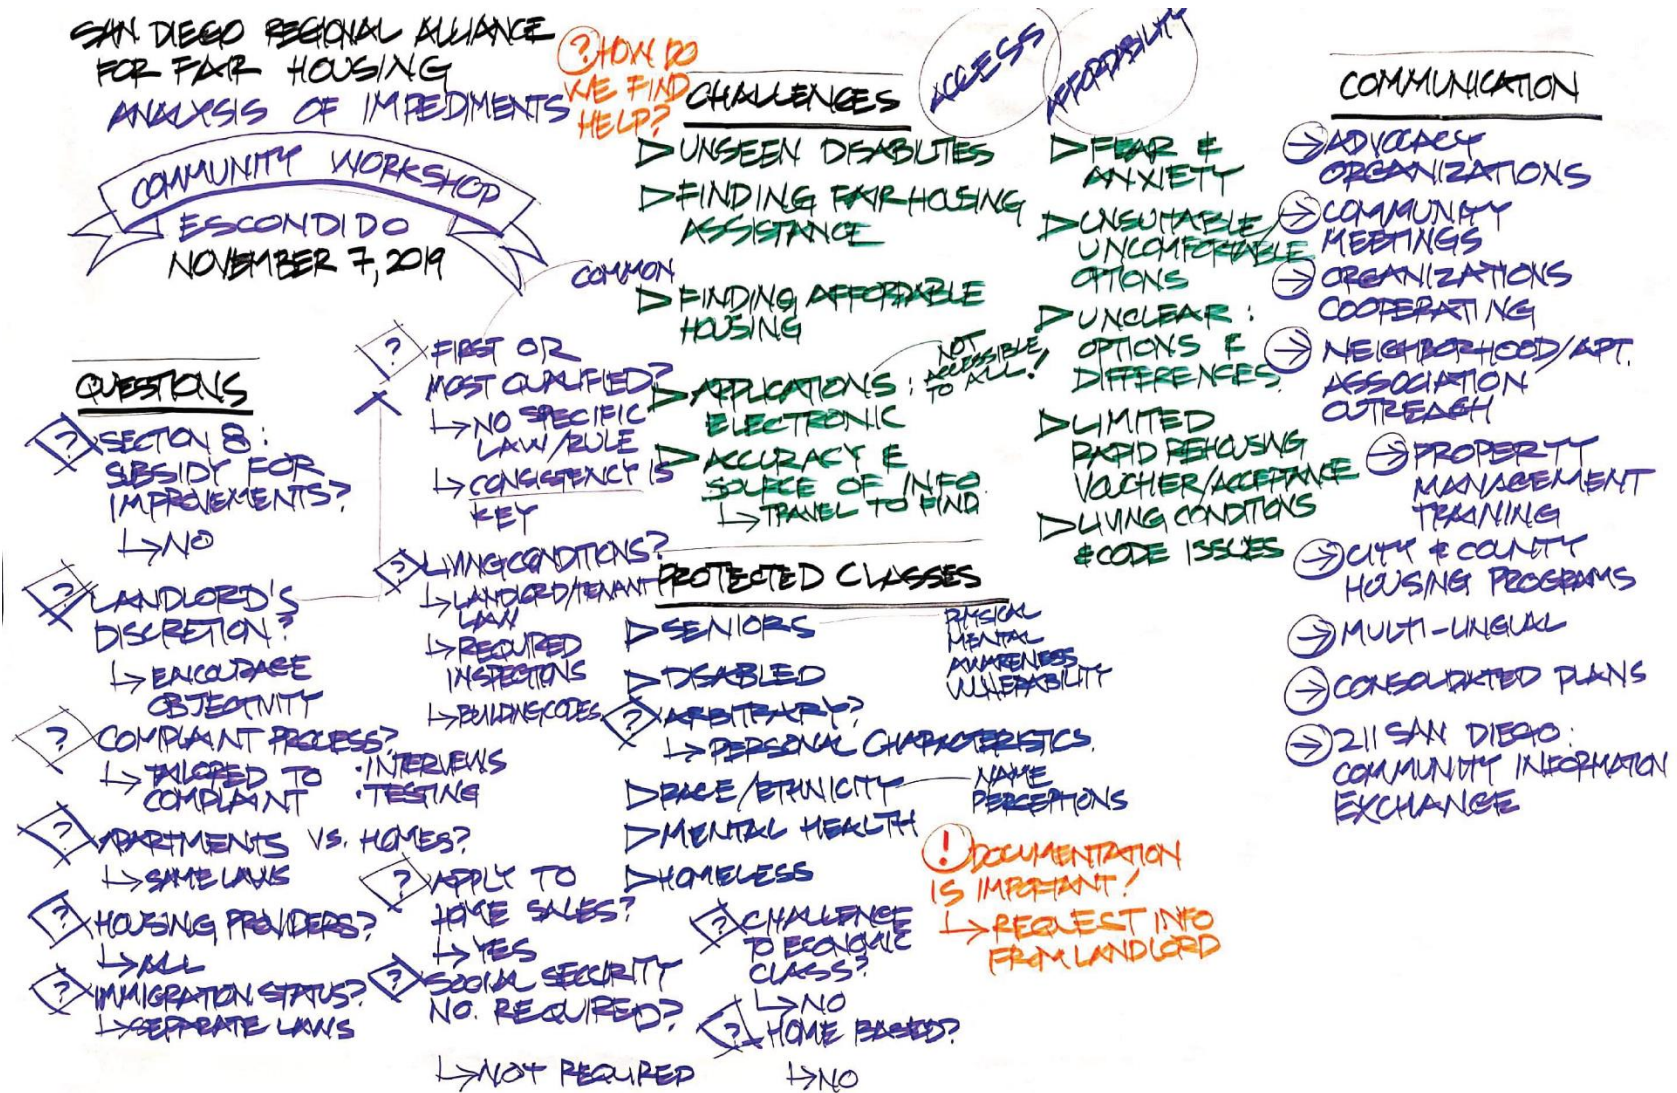 SAN DIEGO REGIONAL ALLIANCE
FOR FAIR HOUSING
ANALYSIS OF IMPEDIMENTS
COMMUNITY WORKSHOP
ESCONDIDO
NOVEMBER 7, 2019
? HOW DO
WE FIND
HELP?
ACCESS
AFFORDABILITY
QUESTIONS
? SECTION 8:
SUBSIDY FOR
IMPROVEMENTS?
↳ NO
? LANDLORD'S
DISCRETION?
↳ ENCOURAGE
OBJECTIVITY
? COMPLAINT PROCESS?
↳ TAILORED TO
COMPLAINT
• INTERVIEWS
• TESTING
? APARTMENTS VS. HOMES?
↳ SAME LAWS
? HOUSING PROVIDERS?
↳ ALL
? IMMIGRATION STATUS?
↳ SEPARATE LAWS
COMMON
? FIRST OR
MOST QUALIFIED?
↳ NO SPECIFIC
LAW/RULE
↳ CONSISTENCY IS
KEY
? LIVING CONDITIONS?
↳ LANDLORD/TENANT
LAW
↳ REQUIRED
INSPECTIONS
↳ BUILDING CODES
? APPLY TO
HOME SALES?
↳ YES
? SOCIAL SECURITY
NO. REQUIRED?
↳ NOT REQUIRED
CHALLENGES
▷ UNSEEN DISABILITIES
▷ FINDING FAIR HOUSING
ASSISTANCE
▷ FINDING AFFORDABLE
HOUSING
▷ APPLICATIONS:
ELECTRONIC
NOT
ACCESSIBLE
TO ALL!
▷ ACCURACY &
SOURCE OF INFO
↳ TRAVEL TO FIND
▷ FEAR &
ANXIETY
▷ UNSUITABLE/
UNCOMFORTABLE
OPTIONS
▷ UNCLEAR:
OPTIONS &
DIFFERENCES
▷ LIMITED
RAPID REHOUSING
VOUCHER/ACCEPTANCE
▷ LIVING CONDITIONS
& CODE ISSUES
PROTECTED CLASSES
▷ SENIORS
PHYSICAL
MENTAL
AWARENESS
VULNERABILITY
▷ DISABLED
? ARBITRARY?
↳ PERSONAL CHARACTERISTICS
▷ RACE/ETHNICITY
NAME
PERCEPTIONS
▷ MENTAL HEALTH
▷ HOMELESS
? CHALLENGE
TO ECONOMIC
CLASS?
↳ NO
? HOME BASED?
↳ NO
! DOCUMENTATION
IS IMPORTANT!
↳ REQUEST INFO
FROM LANDLORD
COMMUNICATION
→ ADVOCACY
ORGANIZATIONS
→ COMMUNITY
MEETINGS
→ ORGANIZATIONS
COOPERATING
→ NEIGHBORHOOD/APT.
ASSOCIATION
OUTREACH
→ PROPERTY
MANAGEMENT
TRAINING
→ CITY & COUNTY
HOUSING PROGRAMS
→ MULTI-LINGUAL
→ CONSOLIDATED PLANS
→ 211 SAN DIEGO:
COMMUNITY INFORMATION
EXCHANGE